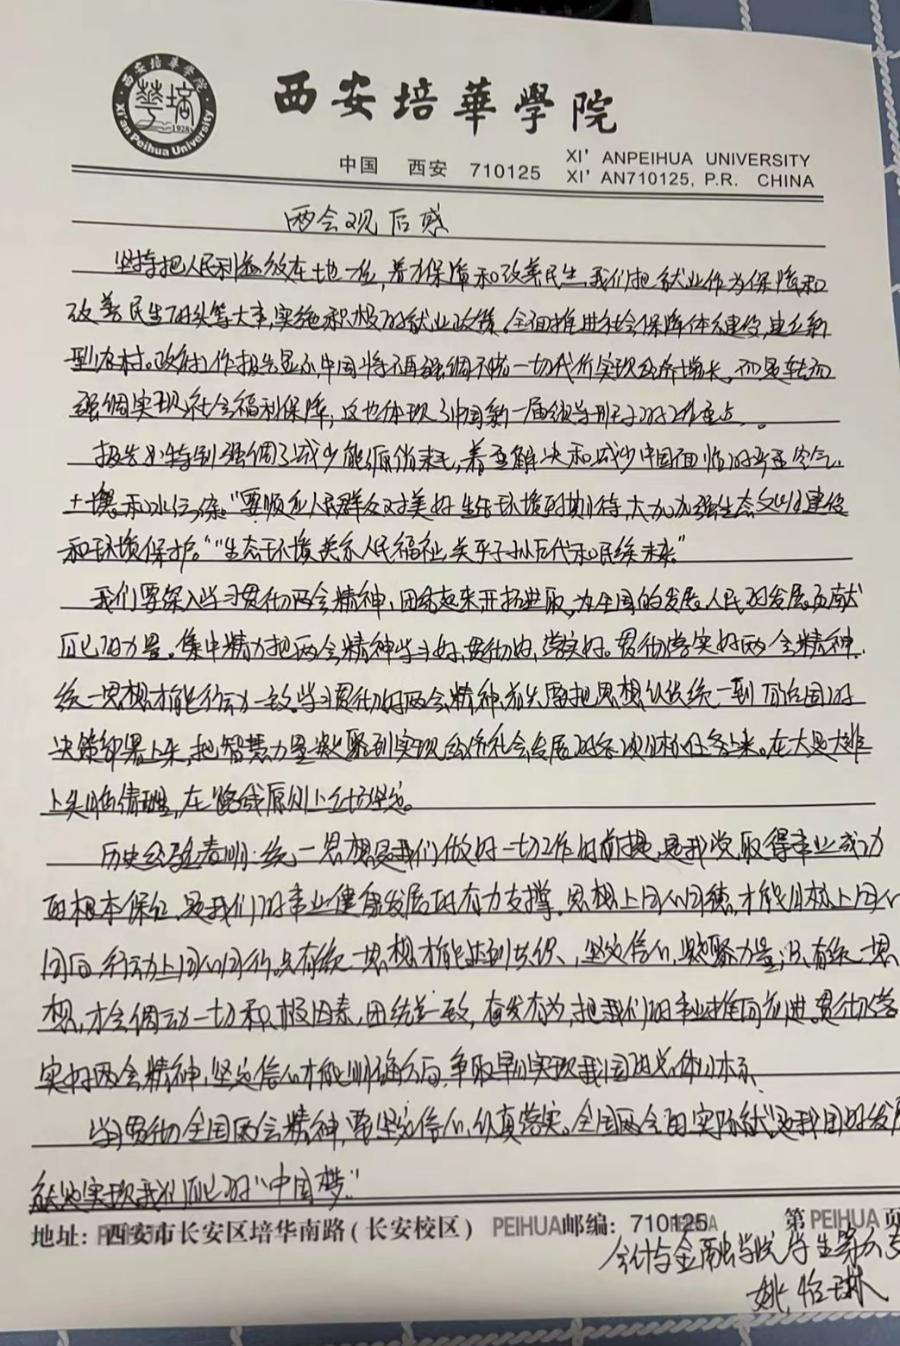 西安培華學院
西安培華學院
華培
1928
Xi'an Peihua University
中国 西安 710125
XI' ANPEIHUA UNIVERSITY
XI' AN710125, P.R. CHINA
两会观后感
坚持把人民利益放在地一位,着力保障和改善民生,我们把就业作为保障和
改善民生的头等大事,实施积极的就业政策,全面推进社会保障体系建设,建立新
型农村。政府工作报告显示,中国将不再强调不惜一切代价实现经济增长,而是转而
强调实现社会福利保障,这也体现了中国新一届领导班子的工作重点。
报告还特别强调了减少能源消耗,着重解决和减少中国面临的严重空气、
土壤和水污染。"要顺应人民群众对美好生活环境的期待,大力加强生态文明建设
和环境保护。""生态环境关系人民福祉,关乎子孙后代和民族未来"
我们要深入学习贯彻两会精神,团结起来开拓进取,为全国的发展、人民的发展贡献
自己的力量。集中精力把两会精神学习好,贯彻好,落实好。贯彻落实好两会精神,
统一思想才能行动一致。学习贯彻好两会精神,首先要把思想认识统一到 全国的
决策部署上来,把智慧力量凝聚到实现经济社会发展的各项目标任务上来。在大是大非
上头脑清醒,在路线原则上立场坚定。
历史经验表明:统一思想是我们做好一切工作的前提,是我党取得事业成功
的根本保证,是我们的事业健康发展的有力支撑。思想上同心同德,才能目标上同心
同向,行动上同心同行。只有统一思想才能达到共识、坚定信心,凝聚力量;只有统一思
想,才会调动一切积极因素,团结一致,奋发有为,把我们的事业推向前进。贯彻落
实好两会精神,坚定信心才能明确方向,争取早日实现我国的总体目标。
学习贯彻全国两会精神,需坚定信心,认真落实。全国两会的实际就是我国的发展
就是实现我们自己的"中国梦"
地址: 西安市长安区培华南路(长安校区) PEIHUA邮编: 710125 第 PEIHUA 页
会计与金融学院学生第六支
姚怡琳